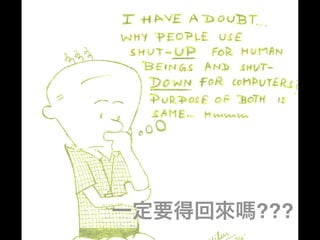 I HAVE A DOUBT...
WHY PEOPLE USE
SHUT-UP FOR HUMAN
BEINGS AND SHUT-
DOWN FOR COMPUTERS?
PURPOSE OF BOTH IS
SAME... HMMMM
一定要得回來嗎???